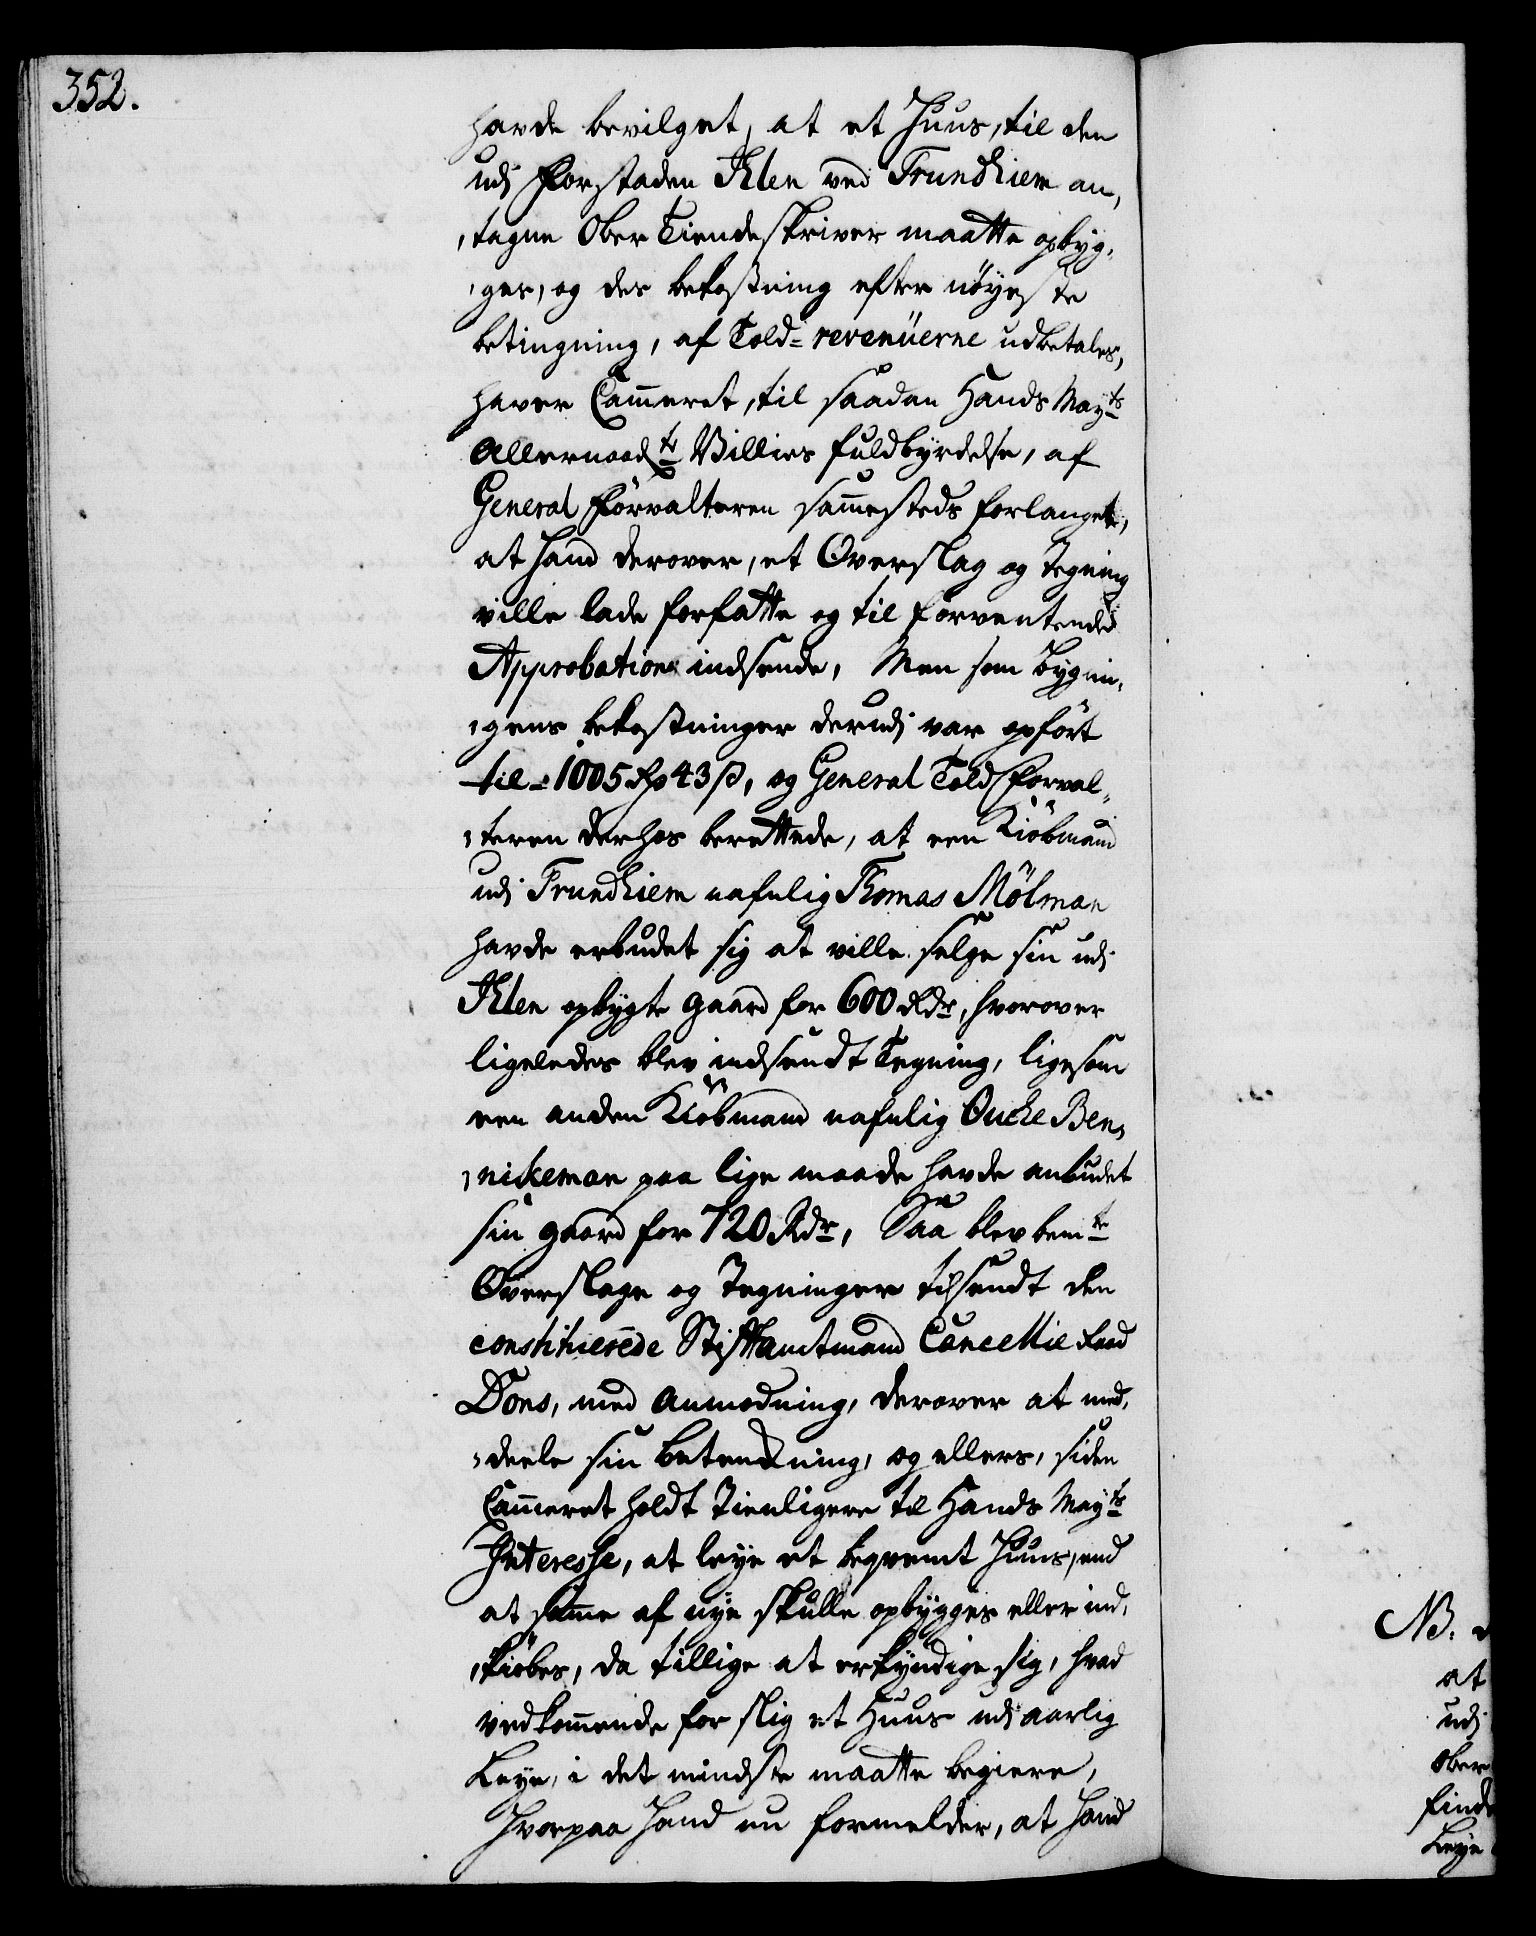 352.
havde bevilget, at et Huus, til den
udj Forstaden Ihlen ved Trundhiem an,
,tagne Ober Tiendeskriver maatte opbyg,
,ges, og des bekostning efter nöyeste
betingning, af Told=revenüerne udbetales,
haver Cammeret, til saadan Hands Mayts
Allernaadte Villies fuldbyrdelse, af
General Forvalteren sammesteds forlanget,
at hand derover, et Overslag og Tegning
ville lade forfatte og til forventende
Approbation indsende, Men som Bygnin,
,gens bekostninger derudj var opfört
til 1005 Rd 43 ß, og General Toldforval,
,teren derhos berettede, at een Kiöbmand
udj Trundhiem nafnlig Thomas Mölman
havde erbudet sig at ville selge sin udj
Ihlen opbygte gaard for 600 Rdr, hvorover
ligeledes blev indsendt Tegning, ligesom
een anden Kiöbmand nafnlig Oucke Ben,
,nikeman paa lige maade havde anbudet
sin gaard for 720 Rdr, Saa blev bemte
Overslage og Tegninger tilsendt den
constituerede Stiftamtmand Cancellie Raad
Dons, med Anmodning, derover at med,
,deele sin betenkning, og ellers, siden
Cammeret holdt Tienligere til Hands Mayts
Interesse, at leye et beqvemt Huus, end
at samme af nye skulle opbygges eller ind,
,kiöbes, da tillige at erkyndige sig, hvad
vedkommende for slig et Huus udj aarlig
Leye, i det mindste maatte begiere,
Hvorpaa Hand nu formelder, at Hand
NB.
at
udj
Ober
finde
Leye